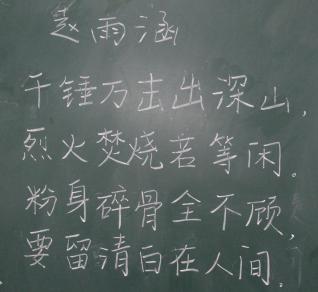 赵雨涵
千锤万击出深山，
烈火焚烧若等闲。
粉身碎骨全不顾，
要留清白在人间。